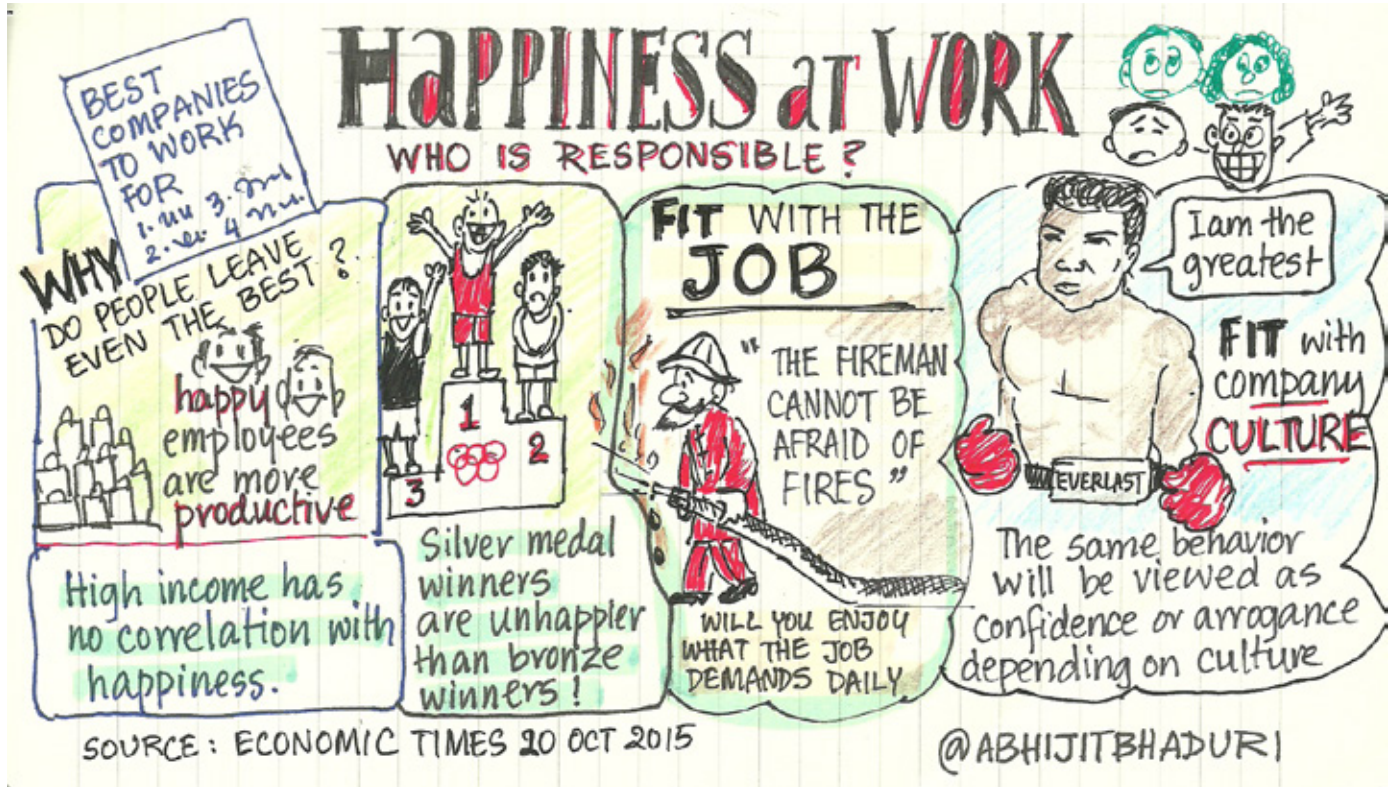 HaPPINESS at WORK
WHO IS RESPONSIBLE?
BEST
COMPANIES
TO WORK
FOR
1.
3.
2.
4
WHY
DO PEOPLE LEAVE
EVEN THE BEST?
happy
employees
are more
productive
High income has
no correlation with
happiness.
1
2
3
Silver medal
winners
are unhappier
than bronze
winners!
FIT WITH THE
JOB
"THE FIREMAN
CANNOT BE
AFRAID OF
FIRES"
WILL YOU ENJOY
WHAT THE JOB
DEMANDS DAILY
I am the
greatest
FIT with
company
CULTURE
EVERLAST
The same behavior
will be viewed as
confidence or arrogance
depending on culture
SOURCE: ECONOMIC TIMES 20 OCT 2015
@ABHIJITBHADURI